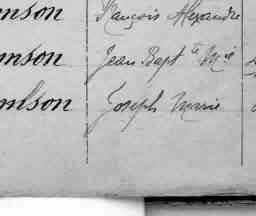 mson François Alexandre
mson Jean Bapt te M ie
mlson Joseph Marie